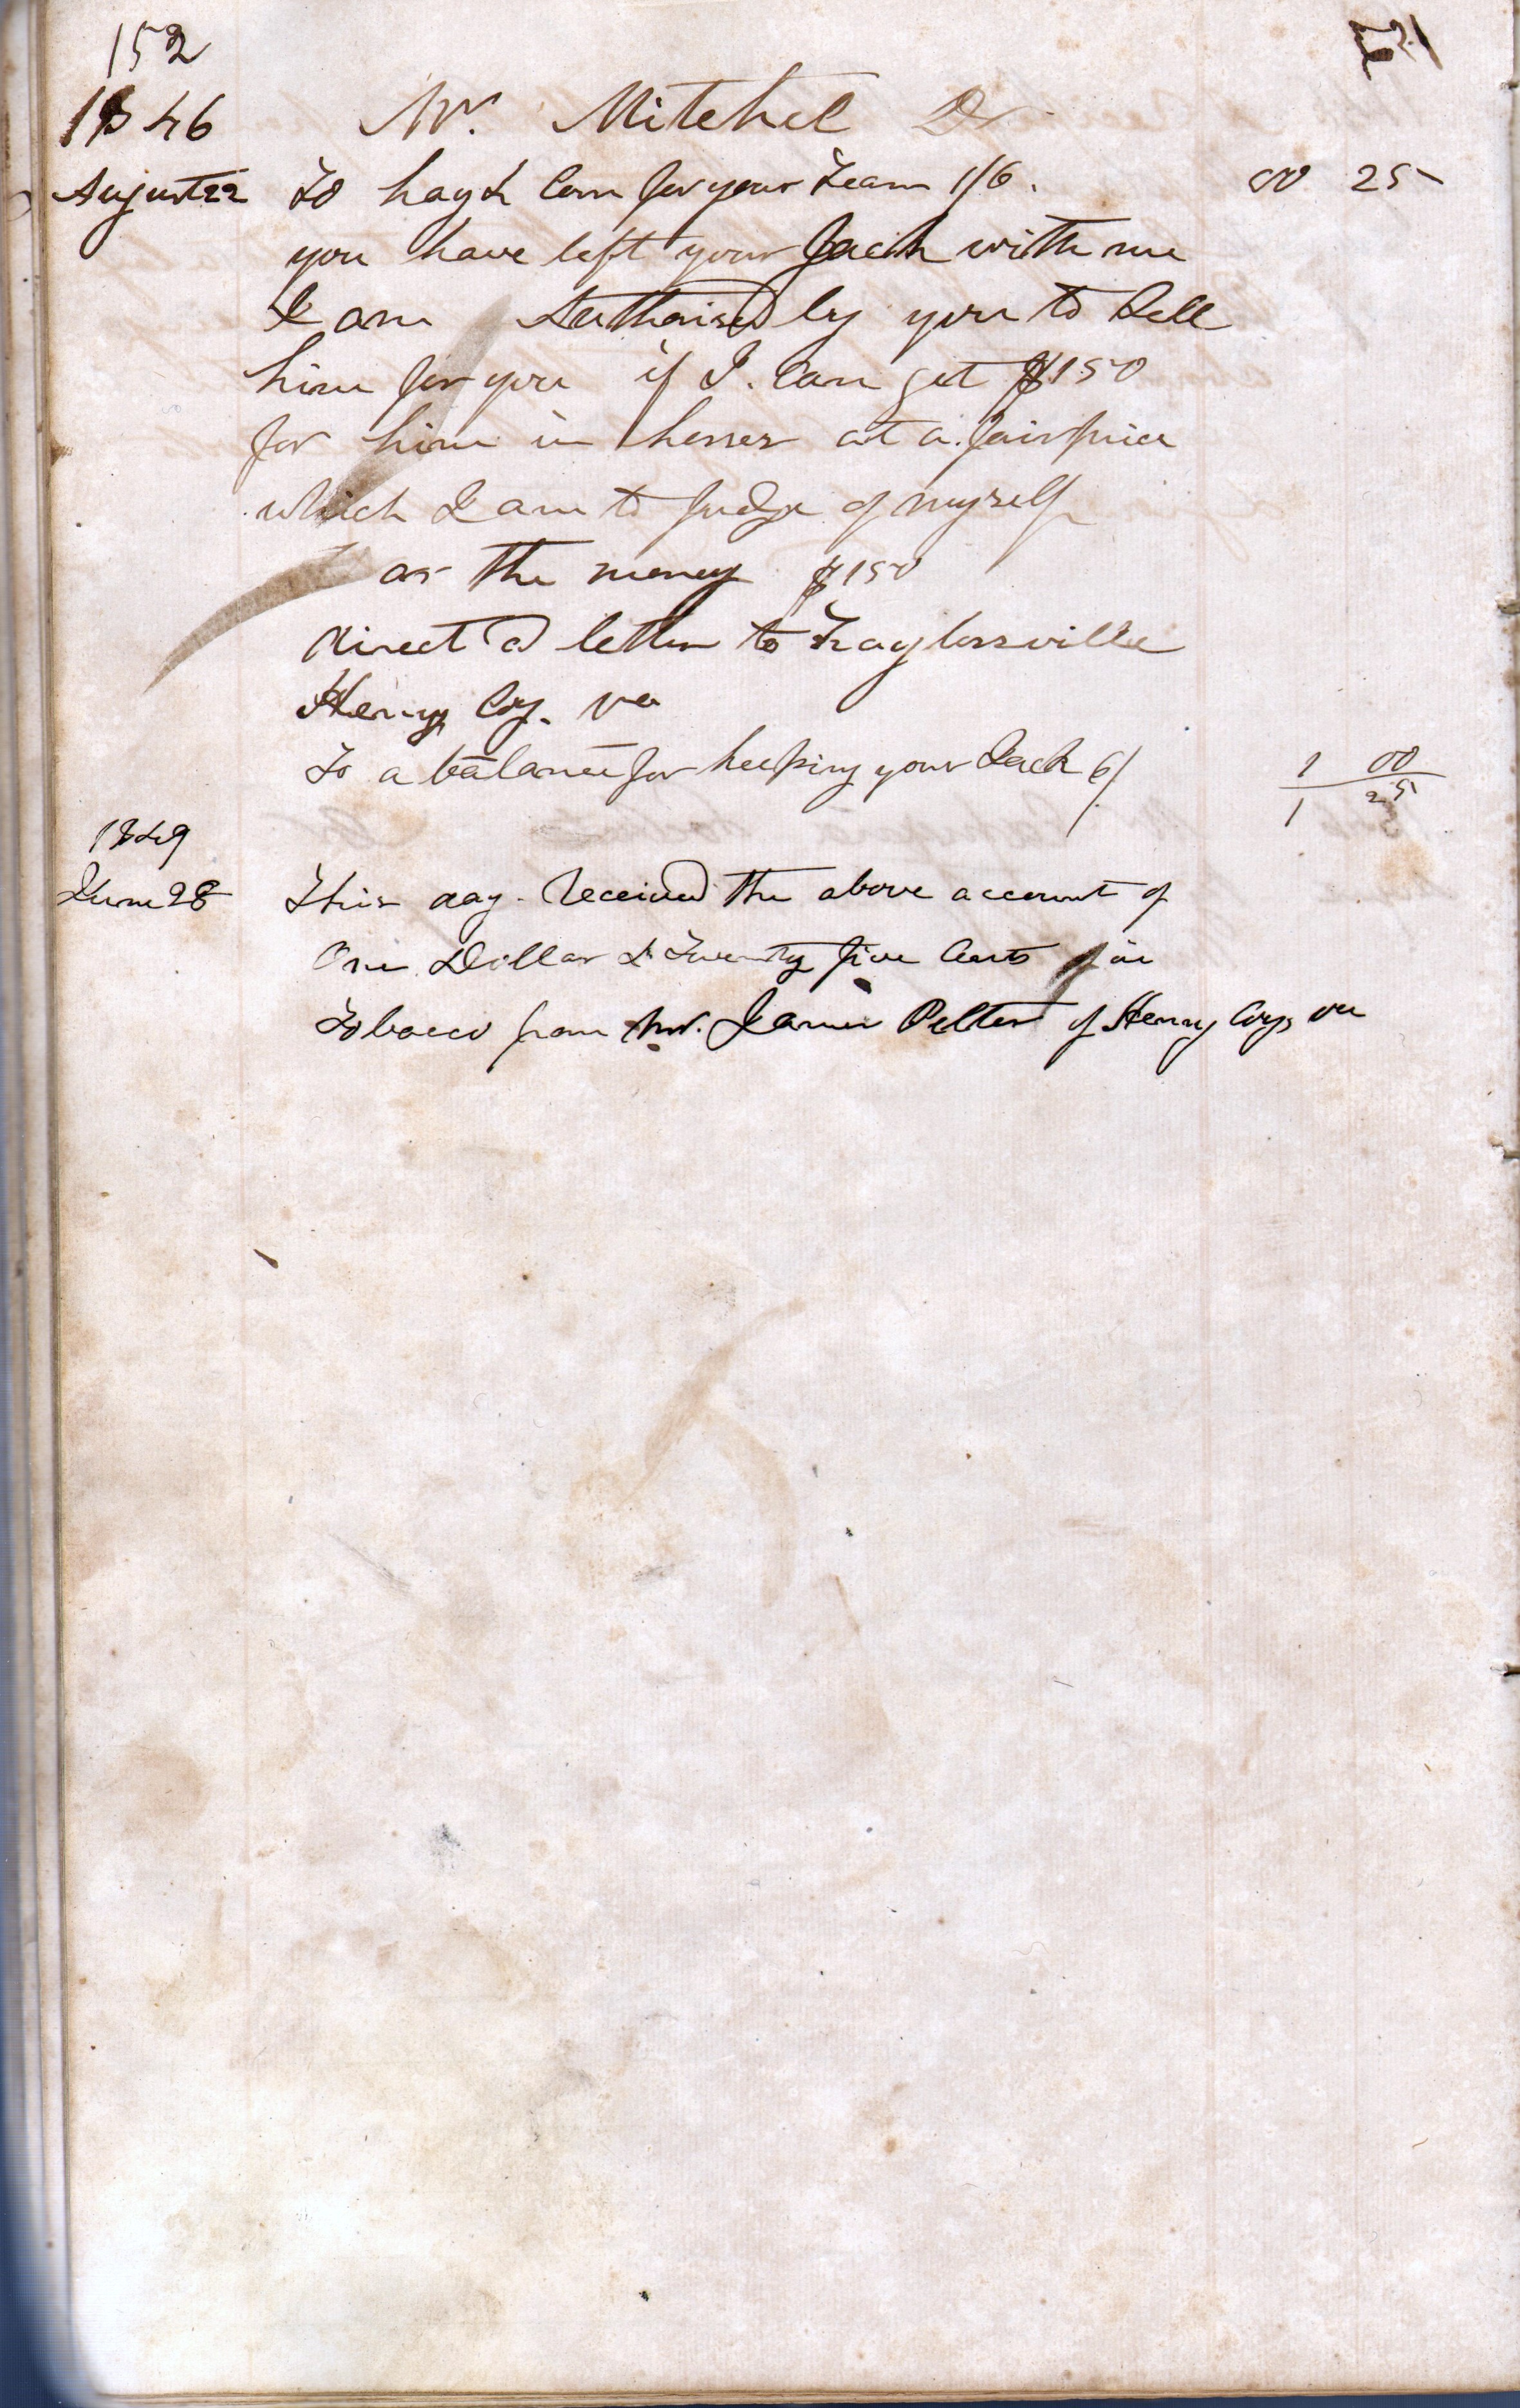 152
1846 Mr. Mitchel Dr
August 22 To hay & Corn for your Team 1/6. 00 25
you have left your Jack with me
I am Authorised by you to Sell
him for you if I. Can get $150
for him in horses at a fair price
which I am to Judge of myself
or the money $150
direct a letter to Traylorsville
Henry Coy. va
To a balance for keeping your Jack 6/ 1 00
1 25
1849
June 28 This day Received the above account of
One Dollar & Twenty five Cents in
Tobacco from Mr. James of Henry Coy, va